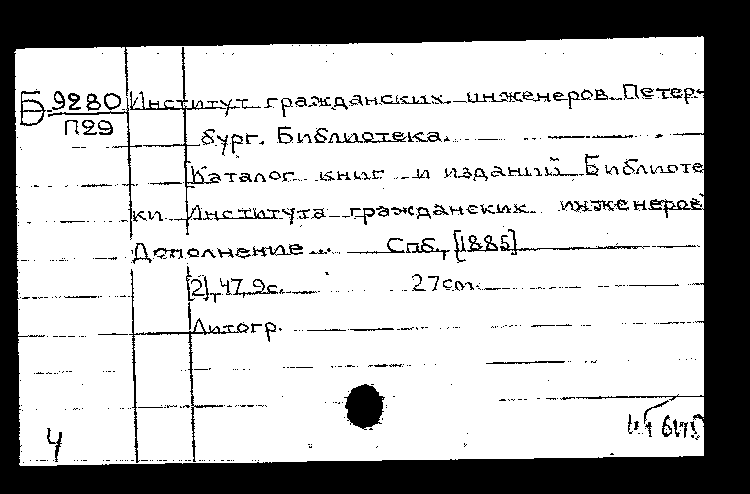 Б 9280 Институт гражданских инженеров. Петер-
П29
бург. Библиотека.
Каталог книг и изданий Библиоте
ки Института гражданских инженеров
Дополнение... Спб., [1885]
[2], 47, 9с. 27см.
Литогр.
4